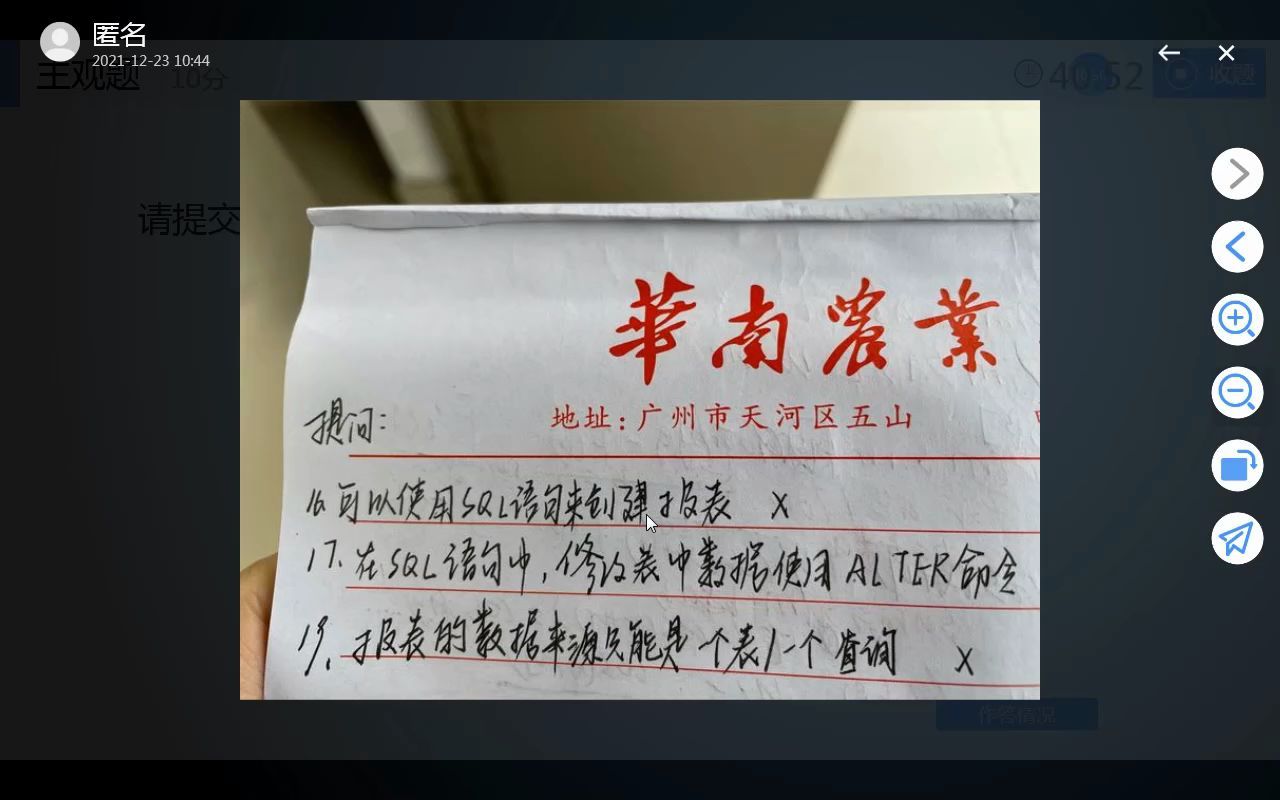 匿名
2021-12-23 10:44
主观题 10分
收题
请提交
華南農業
地址:广州市天河区五山
提问:
16.可以使用SQL语句来创建报表 X
17.在SQL语句中,修改表中数据使用ALTER命令
19.报表的数据来源只能是一个表/一个查询 X
作答情况